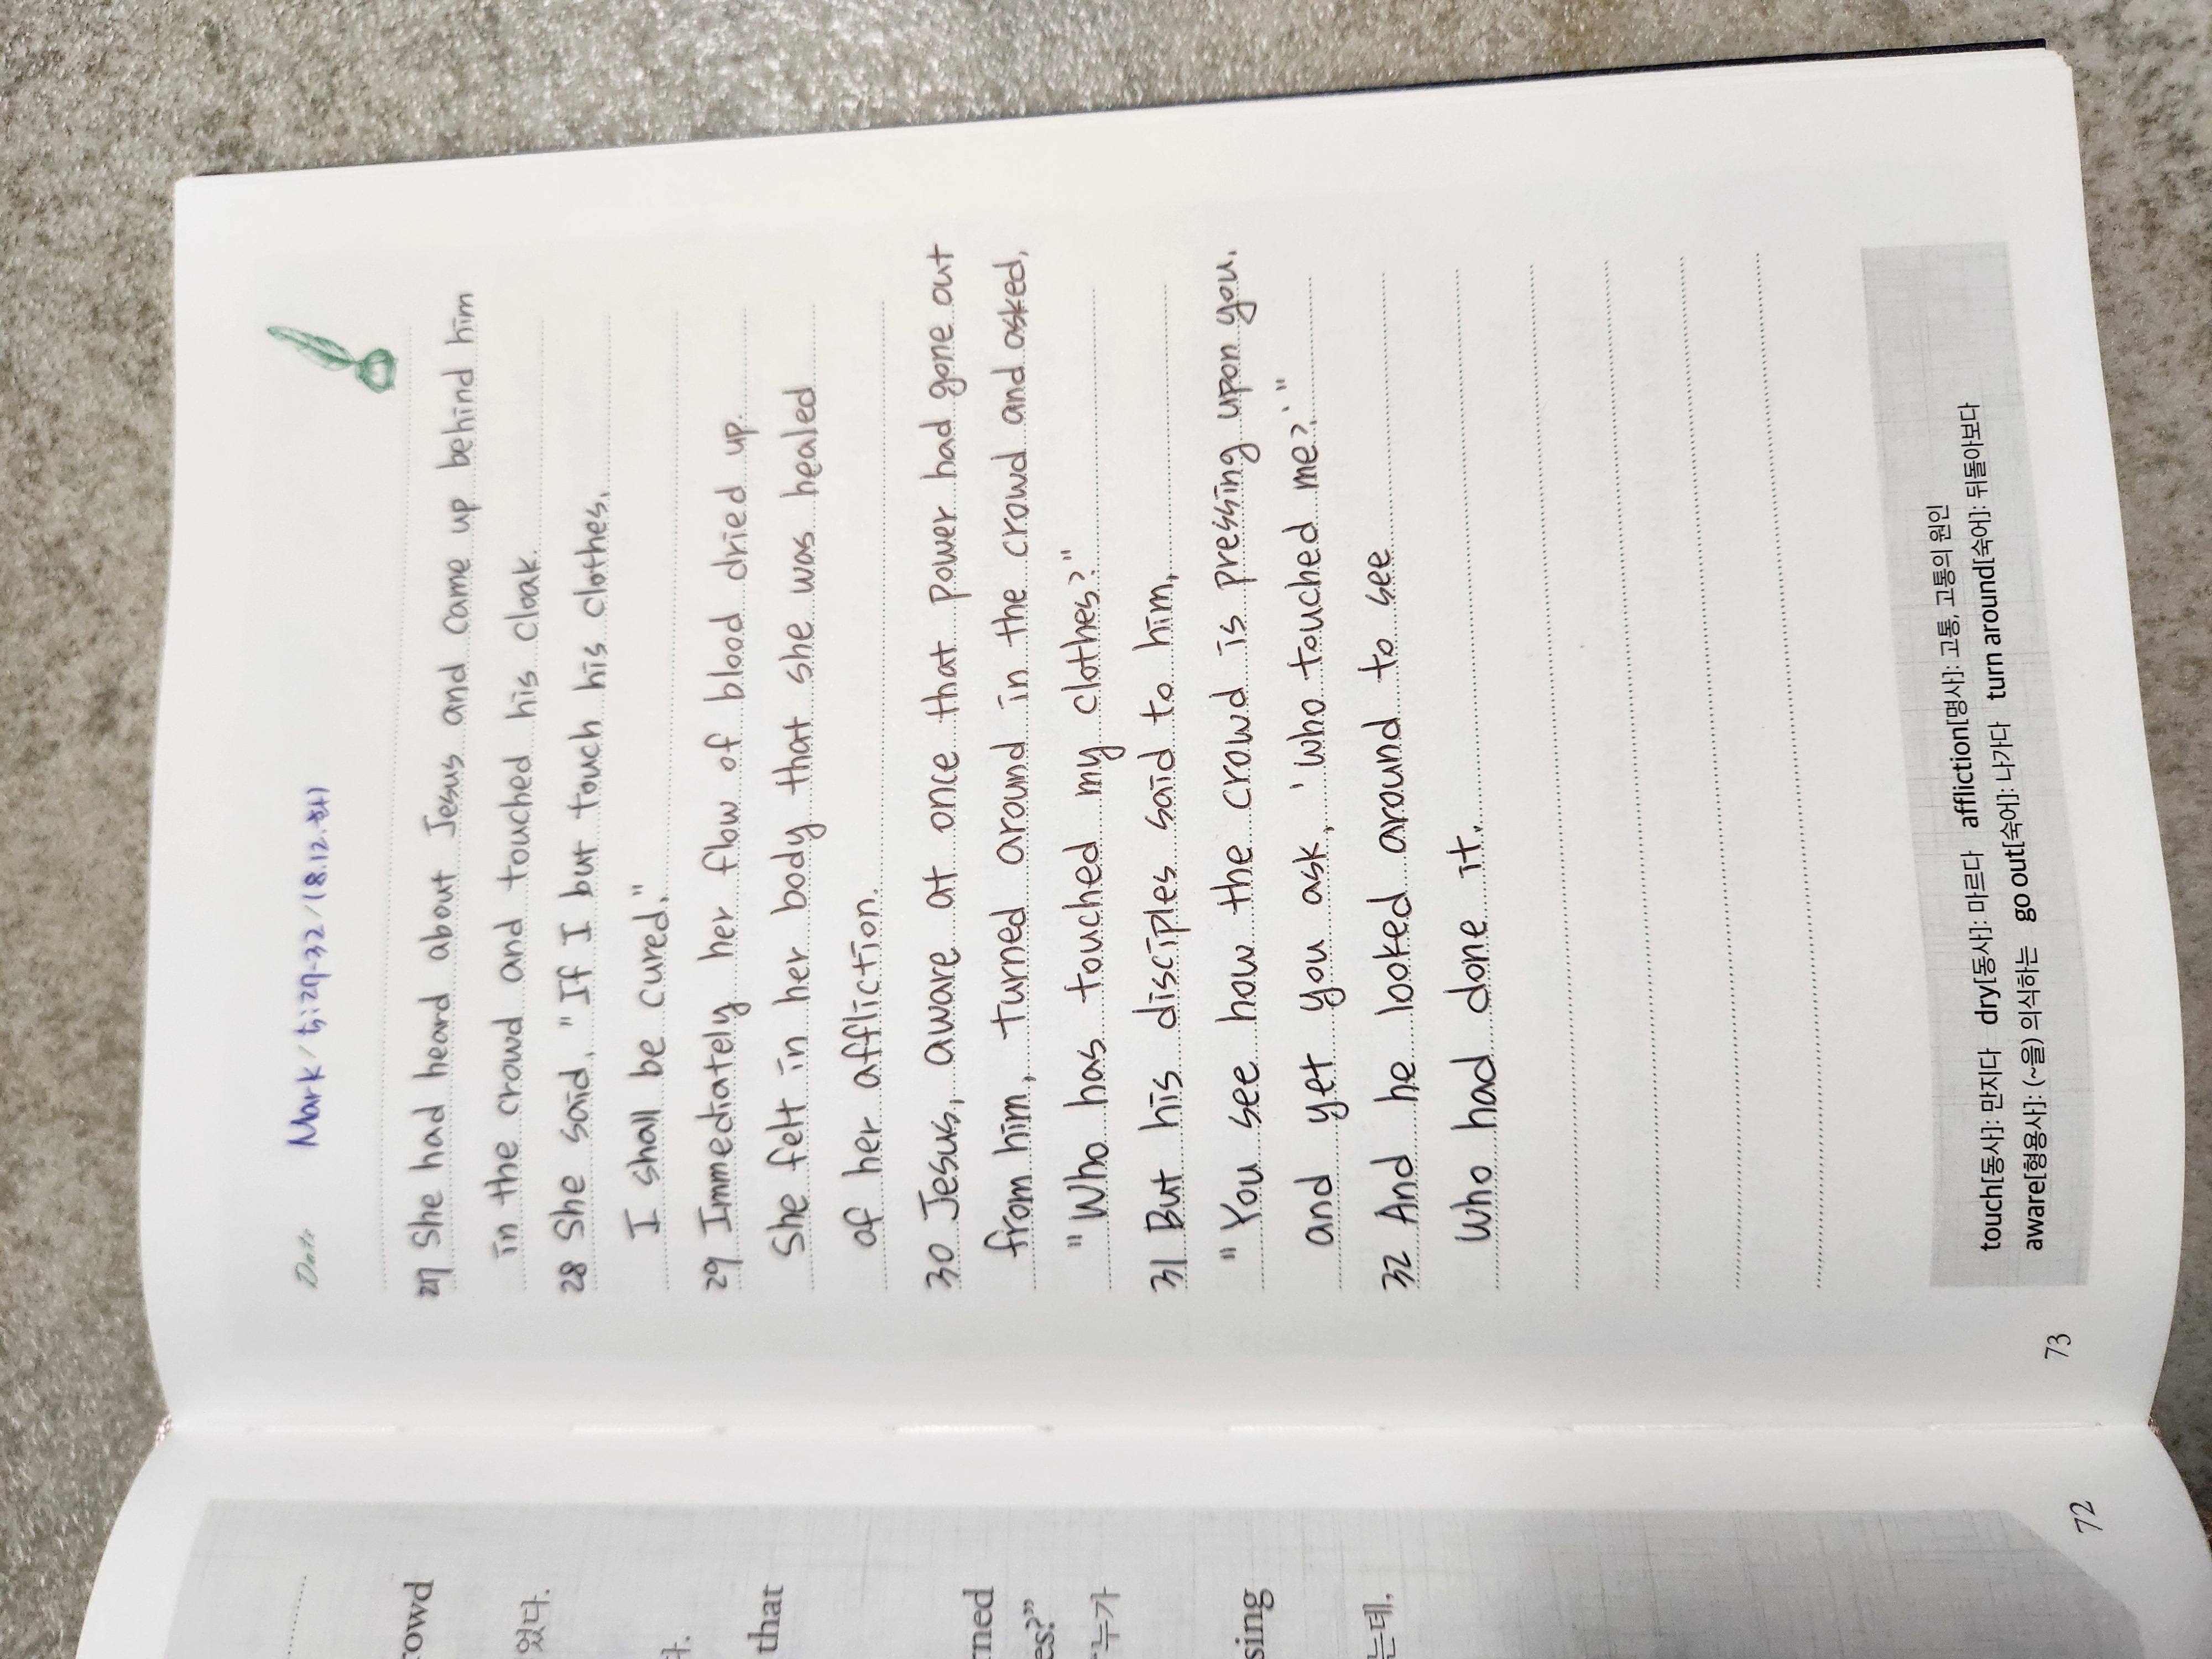 rowd
었다.
다.
that
rned
es?”
“누가
sing
는데,
72
Date
Mark / 5:27-32 / 18.12.화)
27 She had heard about Jesus and came up behind him
in the crowd and touched his cloak.
28 She said, "If I but touch his clothes,
I shall be cured."
29 Immediately her flow of blood dried up.
She felt in her body that she was healed
of her affliction.
30 Jesus, aware at once that power had gone out
from him, turned around in the crowd and asked,
"Who has touched my clothes?"
31 But his disciples said to him,
"You see how the crowd is pressing upon you,
and yet you ask, 'who touched me?'"
32 And he looked around to see
who had done it.
touch[동사]: 만지다 dry[동사]: 마르다 affliction[명사]: 고통, 고통의 원인
aware[형용사]: (~을) 의식하는 go out[숙어]: 나가다 turn around[숙어]: 뒤돌아보다
73